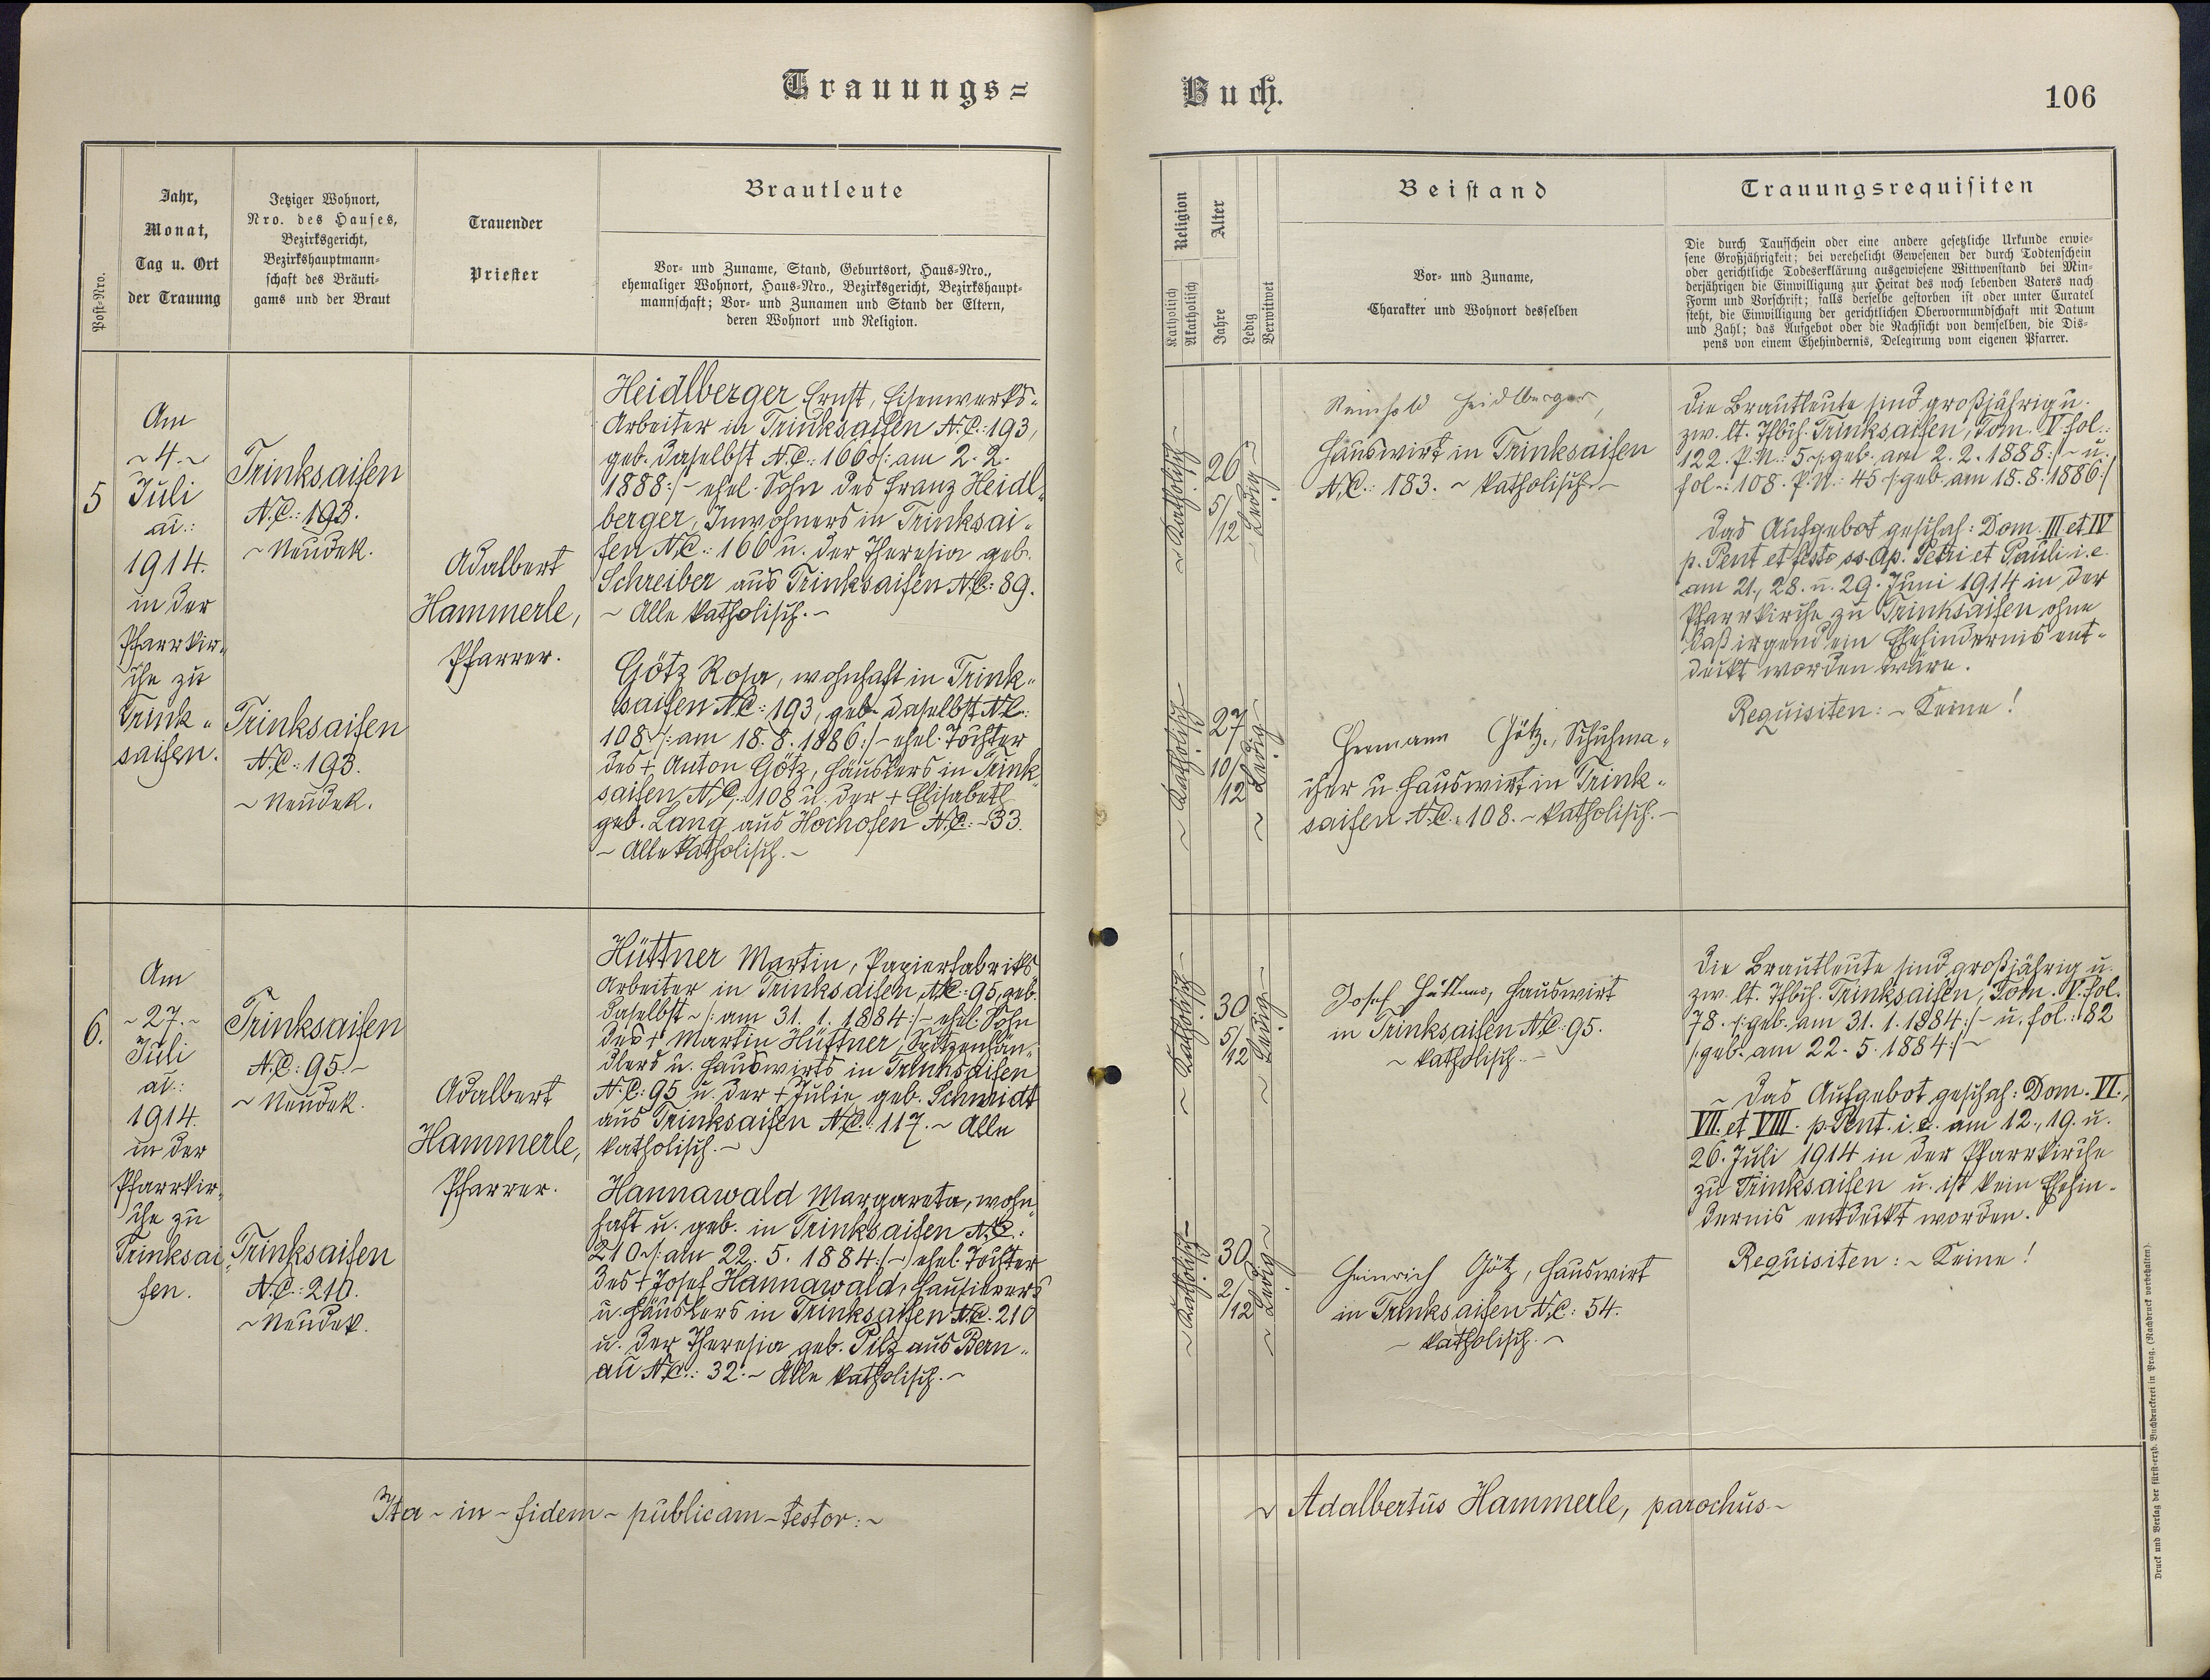 Trauungs=
Buch.
106
Post-Nro.
Jahr,
Monat,
Tag u. Ort
der Trauung
Jetziger Wohnort,
Nro. des Hauses,
Bezirksgericht,
Bezirkshauptmann-
schaft des Bräuti-
gams und der Braut
Trauender
Priester
Brautleute
Vor- und Zuname, Stand, Geburtsort, Haus-Nro.,
ehemaliger Wohnort, Haus-Nro., Bezirksgericht, Bezirkshaupt-
mannschaft; Vor- und Zunamen und Stand der Eltern,
deren Wohnort und Religion.
Religion
Katholisch
Akatholisch
Alter
Jahre
Ledig
Verwitwet
Beistand
Vor- und Zuname,
Charakter und Wohnort desselben
Trauungsrequisiten
Die durch Taufschein oder eine andere gesetzliche Urkunde erwie-
sene Großjährigkeit; bei verehelicht Gewesenen der durch Todtenschein
oder gerichtliche Todeserklärung ausgewiesene Wittwenstand bei Min-
derjährigen die Einwilligung zur Heirat des noch lebenden Vaters nach
Form und Vorschrift; falls derselbe gestorben ist oder unter Curatel
steht, die Einwilligung der gerichtlichen Obervormundschaft mit Datum
und Zahl; das Aufgebot oder die Nachsicht von demselben, die Dis-
pens von einem Ehehindernis, Delegirung vom eigenen Pfarrer.
5
Am
~ 4. ~
Juli
ai.:
1914.
in der
Pfarrkir„
che zu
Trink„
saifen.
Trinksaifen
N.C.: 193.
~ Neudek.
Trinksaifen
N.C.: 193.
~ Neudek.
Adalbert
Hammerle,
Pfarrer.
Heidlberger Ernst, Eisenwerks-
Arbeiter in Trinksaifen N.C.: 193,
geb. daselbst N.C.: 166 /: am 2. 2.
1888:/ - ehel. Sohn des Franz Heidl„
berger, Inwohners in Trinksai„
fen N.C.: 166 u. der Theresia geb.
Schreiber aus Trinksaifen N.C.: 89.
~ Alle katholisch. ~
Götz Rosa, wohnhaft in Trink„
saifen N.C.: 193, geb. daselbst N.C.:
108 /: am 18. 8. 1886:/ - ehel. Tochter
des + Anton Götz, Häuslers in Trink„
saifen N.C.: 108 u. der + Elisabeth
geb. Lang aus Hochofen N.C.: 33.
~ Alle katholisch. ~
~ Katholisch ~
26
5/12
~ Ledig ~
Reinhold Heidlberger,
Hauswirt in Trinksaifen
N.C.: 183. ~ katholisch. ~
~ Katholisch ~
27
10/12
~ Ledig ~
Hermann Götz, Schuhma„
cher u. Hauswirt in Trink„
saifen N.C.: 108. ~ katholisch. ~
Die Brautleute sind großjährig u.
zw. lt. Tfbch. Trinksaifen, Tom. V. fol.:
122. P. N.: 5 /: geb. am 2. 2. 1888:/ ~ u.
fol.: 108. P. N.: 45 /: geb. am 18. 8. 1886:/
Das Aufgebot geschah: Dom. III et IV
p. Pent et festo ss. Ap. Petri et Pauli i. e.
am 21., 28. u. 29. Juni 1914 in der
Pfarrkirche zu Trinksaifen ohne
daß irgend ein Ehehindernis ent-
deckt worden wäre.
Requisiten: ~ Keine!
6.
Am
~ 27. ~
Juli
ai.:
1914.
in der
Pfarrkir„
che zu
Trinksai„
fen.
Trinksaifen
N.C.: 95 ~
~ Neudek.
Trinksaifen
N.C.: 210.
~ Neudek.
Adalbert
Hammerle,
Pfarrer.
Hüttner Martin, Papierfabriks-
Arbeiter in Trinksaifen N.C.: 95, geb.
daselbst ~ /: am 31. 1. 1884:/ - ehel. Sohn
des + Martin Hüttner, Spitzenhän„
dlers u. Hauswirts in Trinksaifen
N.C.: 95 u. der + Julie geb. Schmidt
aus Trinksaifen N.C.: 117. ~ Alle
katholisch. ~
Hannawald Margareta, wohn„
haft u. geb. in Trinksaifen N.C.:
210 /: am 22. 5. 1884:/ ~ ehel. Tochter
des + Josef Hannawald, Hausierers
u. Häuslers in Trinksaifen N.C. 210
u. der Theresia geb. Pilz aus Bern„
au N.C.: 32. ~ Alle katholisch. ~
~ Katholisch ~
30
5/12
~ Ledig ~
Josef Hüttner, Hauswirt
in Trinksaifen N.C.: 95.
~ katholisch. ~
~ Katholisch ~
30
2/12
~ Ledig ~
Heinrich Götz, Hauswirt
in Trinksaifen N.C.: 54.
~ katholisch. ~
Die Brautleute sind großjährig u.
zw. lt. Tfbch. Trinksaifen, Tom. V. fol.
78. /: geb. am 31. 1. 1884:/ ~ u. fol.: 82
/: geb. am 22. 5. 1884:/ ~
~ Das Aufgebot geschah: Dom. VI.,
VII. et VIII. p. Pent. i. e. am 12., 19. u.
26. Juli 1914 in der Pfarrkirche
zu Trinksaifen u. ist kein Ehehin-
dernis entdeckt worden.
Requisiten: ~ Keine!
Ita ~ in ~ fidem ~ publicam ~ testor: ~
~ Adalbertus Hammerle, parochus ~
Druck und Verlag der fürst-erzb. Buchdruckerei in Prag. (Nachdruck vorbehalten).